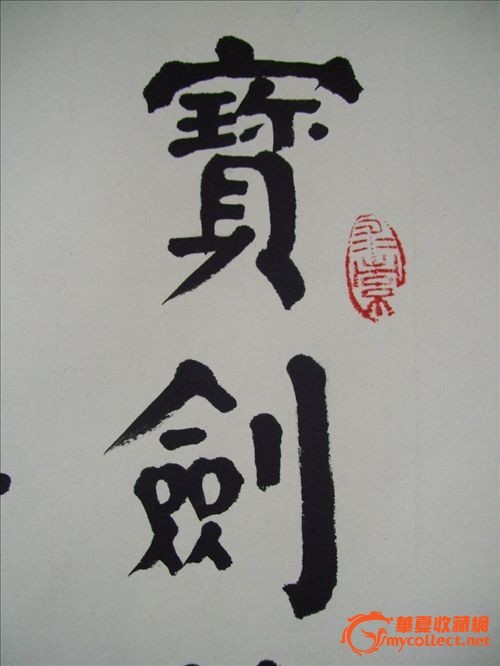 寶劍
華夏收藏網
mycollect.net